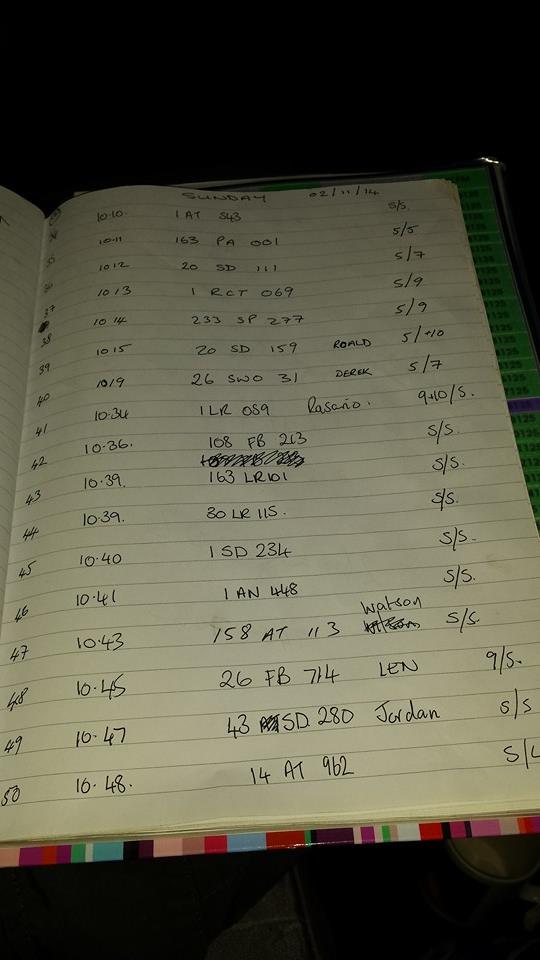 SUNDAY 02/11/14
10.10. 1 AT 543 5/5.
10.11 163 PA 001 5/5
35 10.12 20 SD 111 5/7
36 10.13 1 RCT 069 5/9
37 10.14 233 SP 277 5/9
38 10.15 20 SD 159 ROALD 5/+10
39 10.19 26 SWO 31 DEREK 5/7
40 10.34 1 LR 059 Rosario. 9+10/S.
41 10.36. 108 FB 213 S/S.
42 10.39. 163 LR 101 S/S.
43 10.39. 30 LR 115. S/S.
44 10.40 1 SD 234 S/S.
45 10.41 1 AN 448 S/S.
46 10.43 158 AT 113 Watson S/S.
47 10.45 26 FB 714 LEN 9/S.
48 10.47 43 SD 280 Jordan S/S
49 10.48. 14 AT 962
50
125